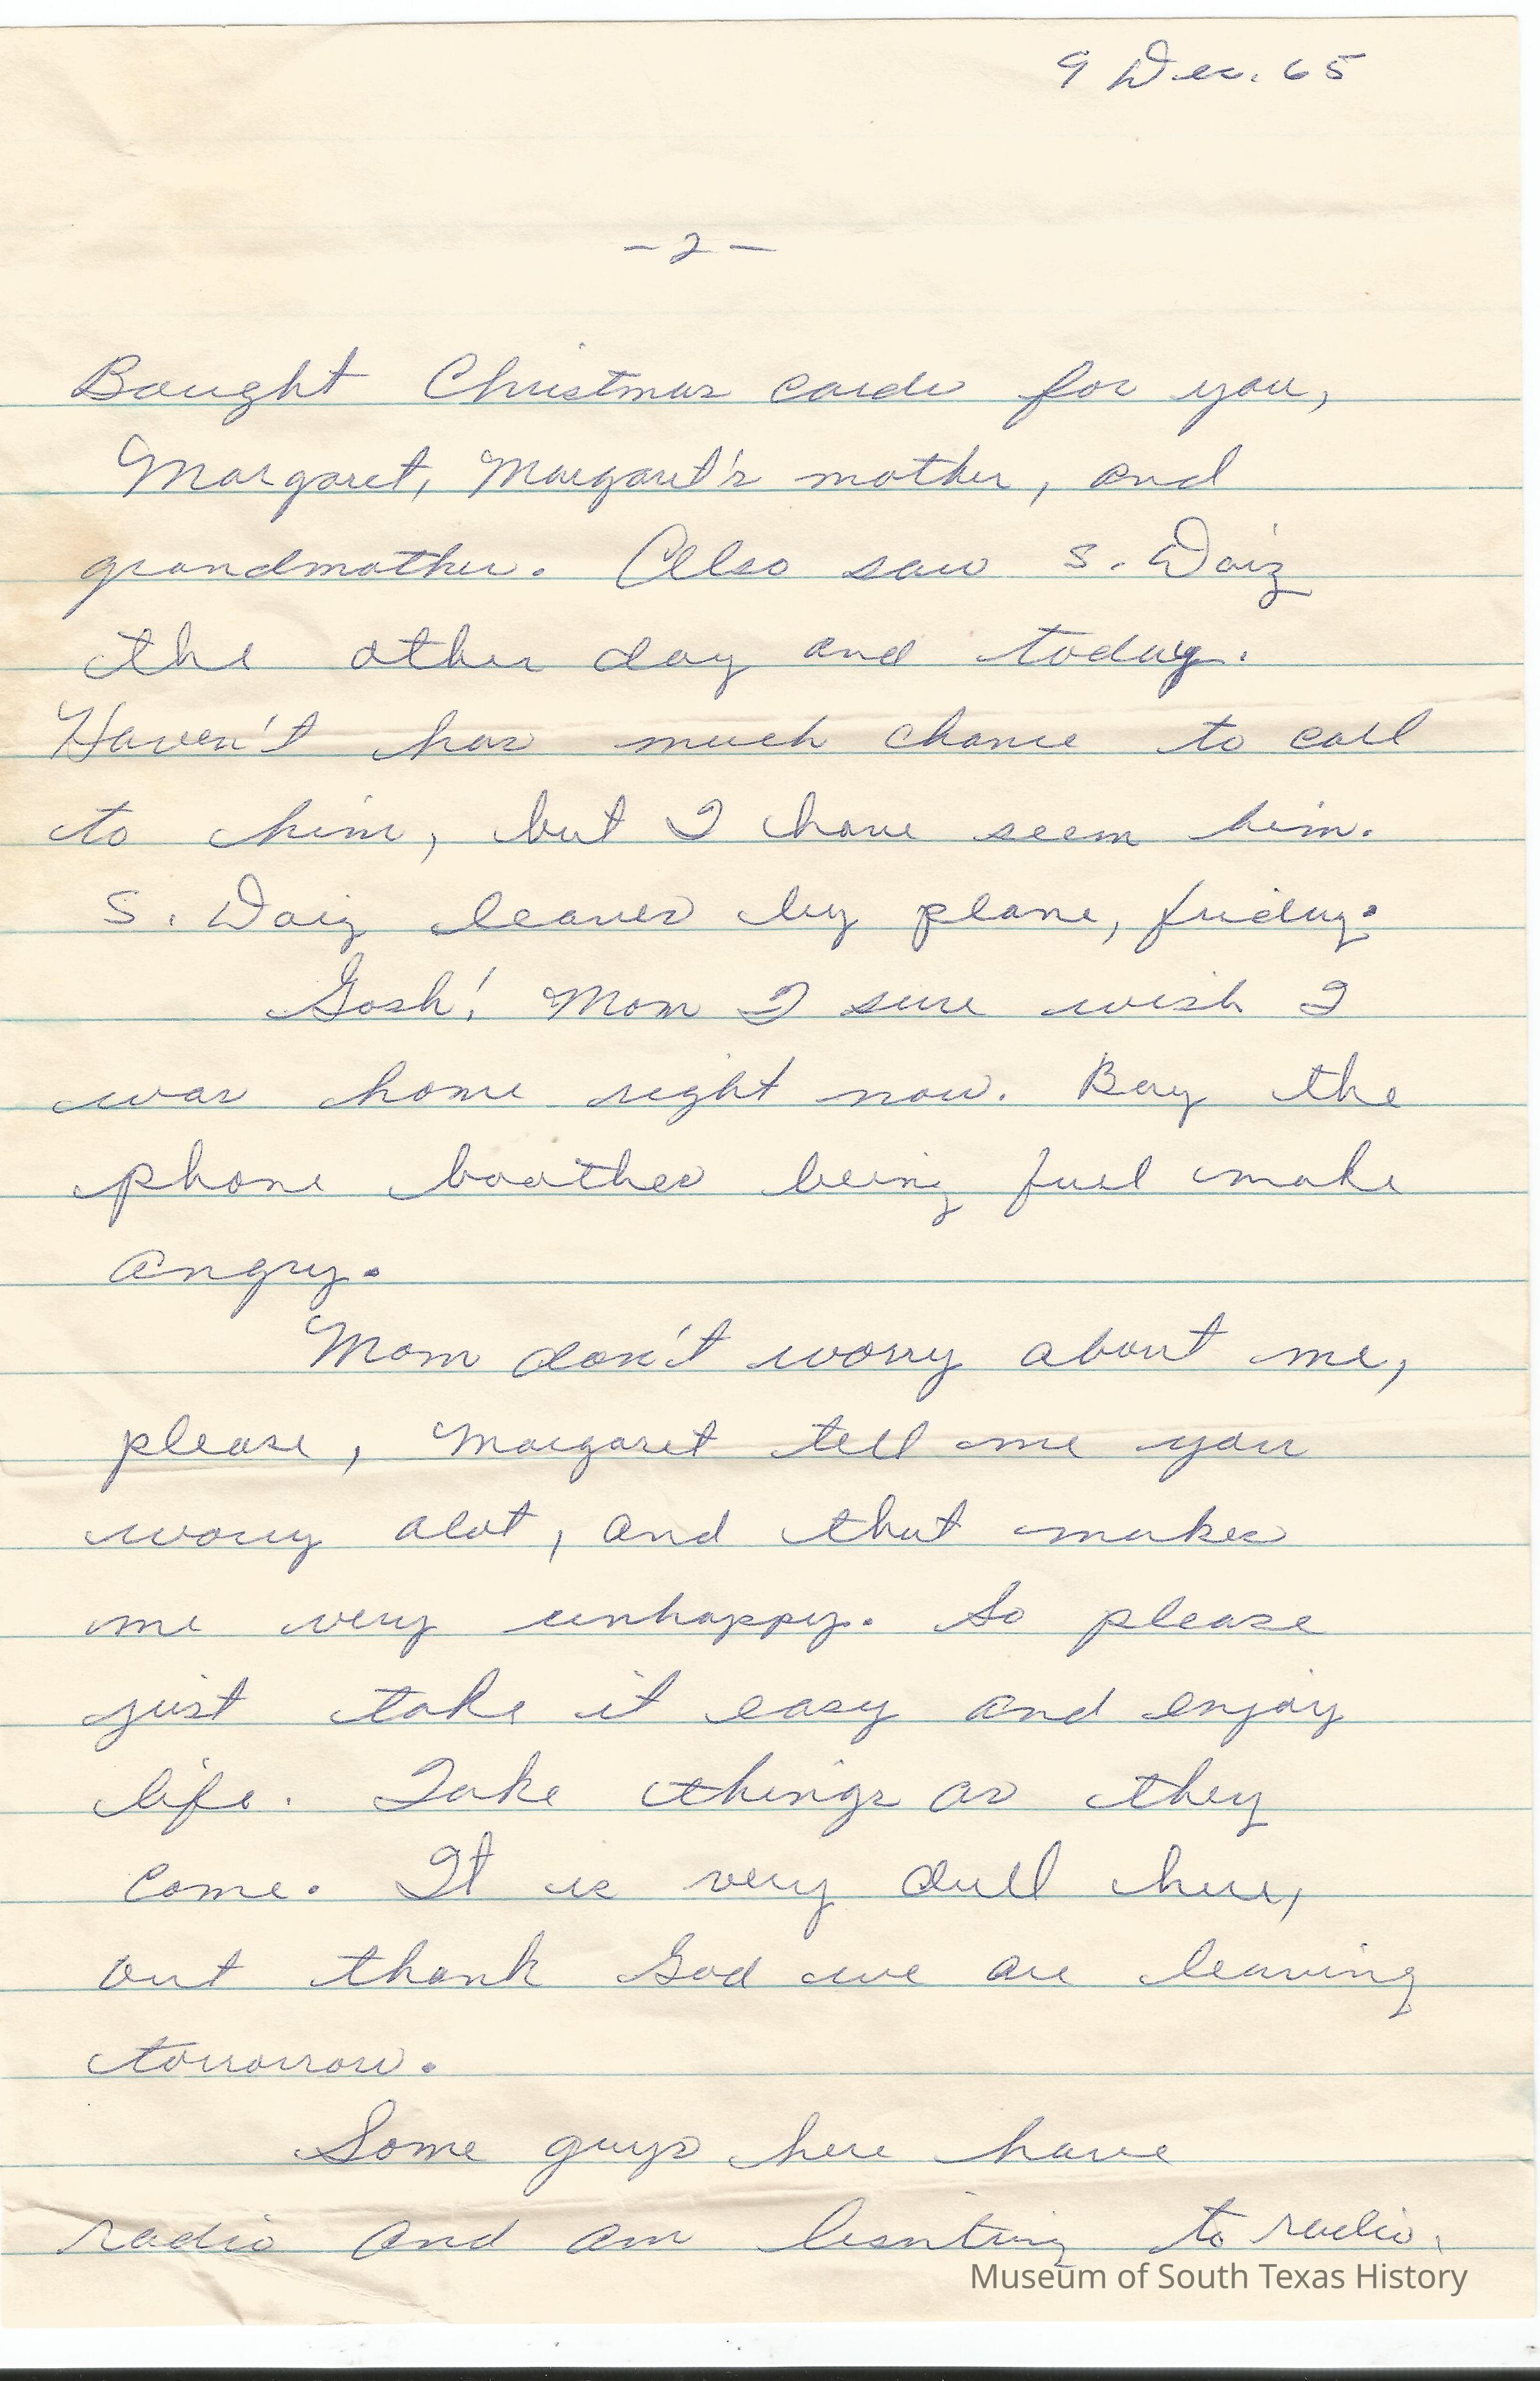 9 Dec. 65
- 2 -
Bought Christmas cards for you,
Margaret, Margaret's mother, and
grandmother. Also saw S. Daiz
the other day and today.
Haven't has much chance to call
to him, but I have seem him.
S. Daiz leaves by plane, friday.
Gosh! Mom I sure wish I
was home right now. Boy the
phone boothes being fuel make
angry.
Mom don't worry about me,
please, Margaret tell me you
worry alot, and that makes
me very unhappy. So please
just take it easy and enjoy
life. Take things as they
come. It is very dull here,
but thank God we are leaving
tomorrow.
Some guys here have
radio and am lisnting to radio.
Museum of South Texas History